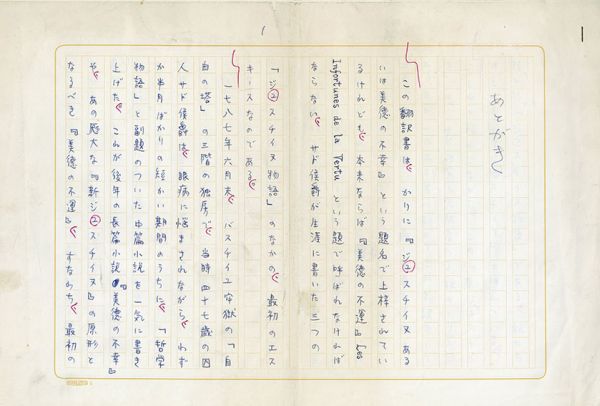 あとがき
この翻訳書は、かりに『ジュスチイヌある
いは美徳の不幸』という題名で上梓されてい
るけれども、本来ならば『美徳の不運』Les
Infortunes de la Vertu という題で呼ばれなければ
ならない。サド侯爵が生涯に書いた三つの
「ジュスチイヌ物語」のなかの、最初のエス
キースなのである。
一七八七年六月末、バスチイユ牢獄の「自
由の塔」の三階の独房で、当時四十七歳の囚
人サド侯爵は、眼病に悩まされながら、わず
か半月ばかりの短かい期間のうちに、「哲学
物語」と副題のついた中篇小説を一気に書き
上げた。これが後年の長篇小説『美徳の不幸』
や、あの厖大な『新ジュスチイヌ』の原形と
なるべき『美徳の不運』、すなわち、最初の